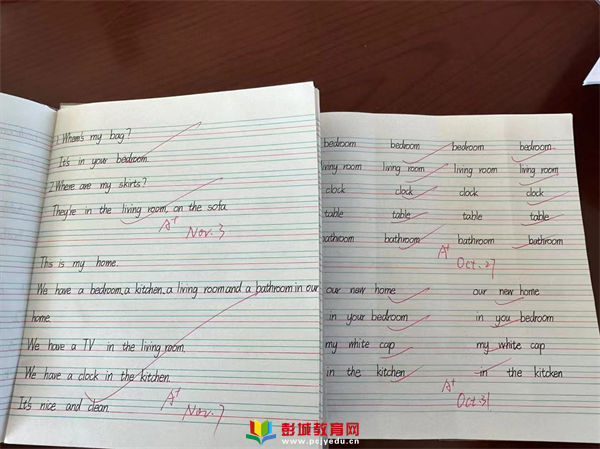 1 Where's my bag?
It's in your bedroom.
2.Where are my skirts?
They're in the living room, on the sofa.
A+ Nov.3
This is my home.
We have a bedroom, a kitchen, a living room and a bathroom in our
home.
We have a TV in the living room.
We have a clock in the kitchen.
It's nice and clean.
A+ Nov.7
bedroom bedroom bedroom bedroom
living room living room living room living room
clock clock clock clock
table table table table
bathroom bathroom bathroom bathroom
A+ Oct.27
our new home our new home
in your bedroom in you bedroom
my white cap my white cap
in the kitchen in the kitchen
A+ Oct.31
彭城教育网
www.pcjyedu.cn